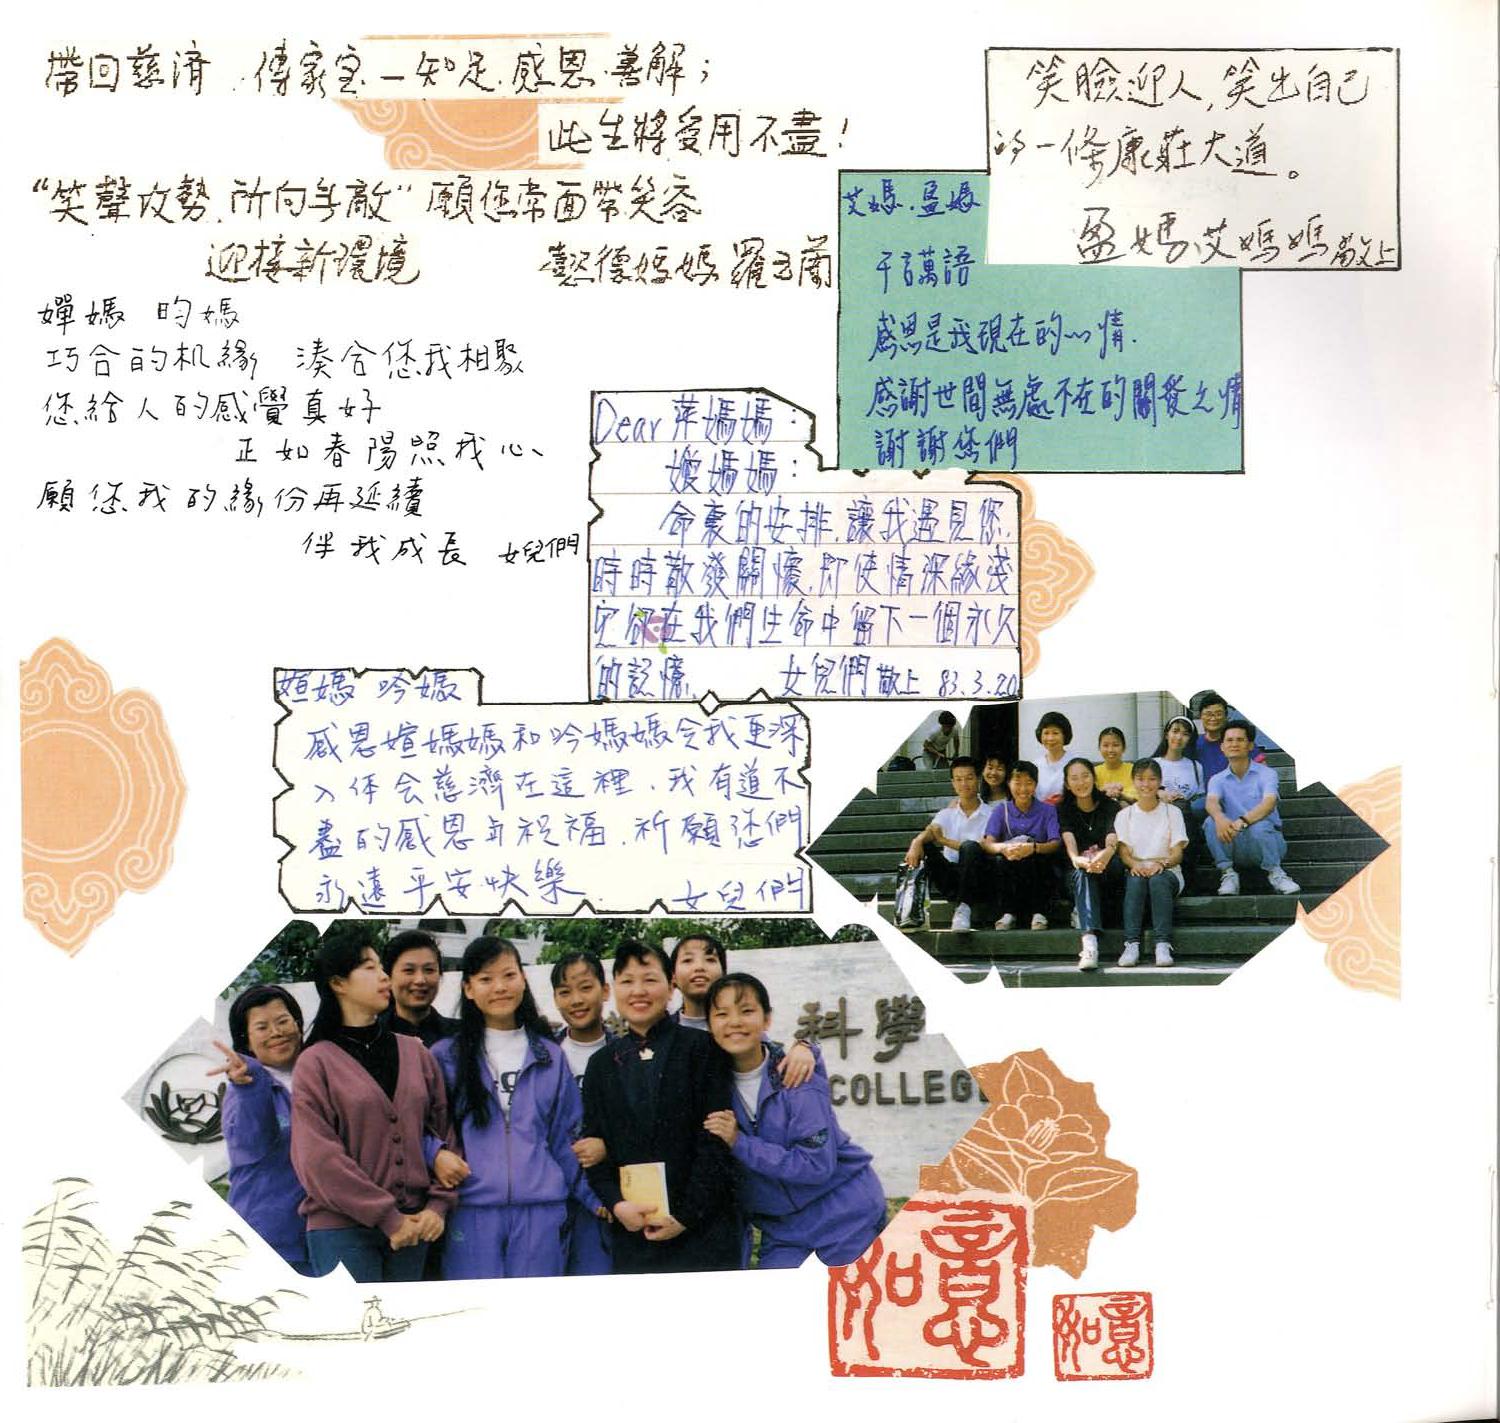 帶回慈済 傳家宝—知足.感恩.善解；
此生將受用不盡！
"笑聲攻勢,所向無敵"願您常面帶笑容
迎接新環境
懿德媽媽 羅玉蘭
笑臉迎人,笑出自己
的一條康莊大道。
盈媽,艾媽媽敬上
艾媽.盈媽
千言萬語
感恩是我現在的心情.
感謝世間無處不在的關愛之情
謝謝您們
嬋媽 昀媽
巧合的机緣 湊合您我相聚
您給人的感覺真好
正如春陽照我心、
願您我的緣份再延續
伴我成長 女兒們
Dear 萍媽媽：
媛媽媽：
命裏的安排,讓我遇見您,
時時散發關懷,即使情深緣淺
您卻在我們生命中留下一個永久
的記憶. 女兒們敬上 83.3.20
媗媽 吟媽
感恩媗媽媽和吟媽媽令我更深
入体会慈濟在這裡.我有道不
盡的感恩与祝福.祈願您們
永遠平安快樂. 女兒們
科學
COLLEG
如意
如意